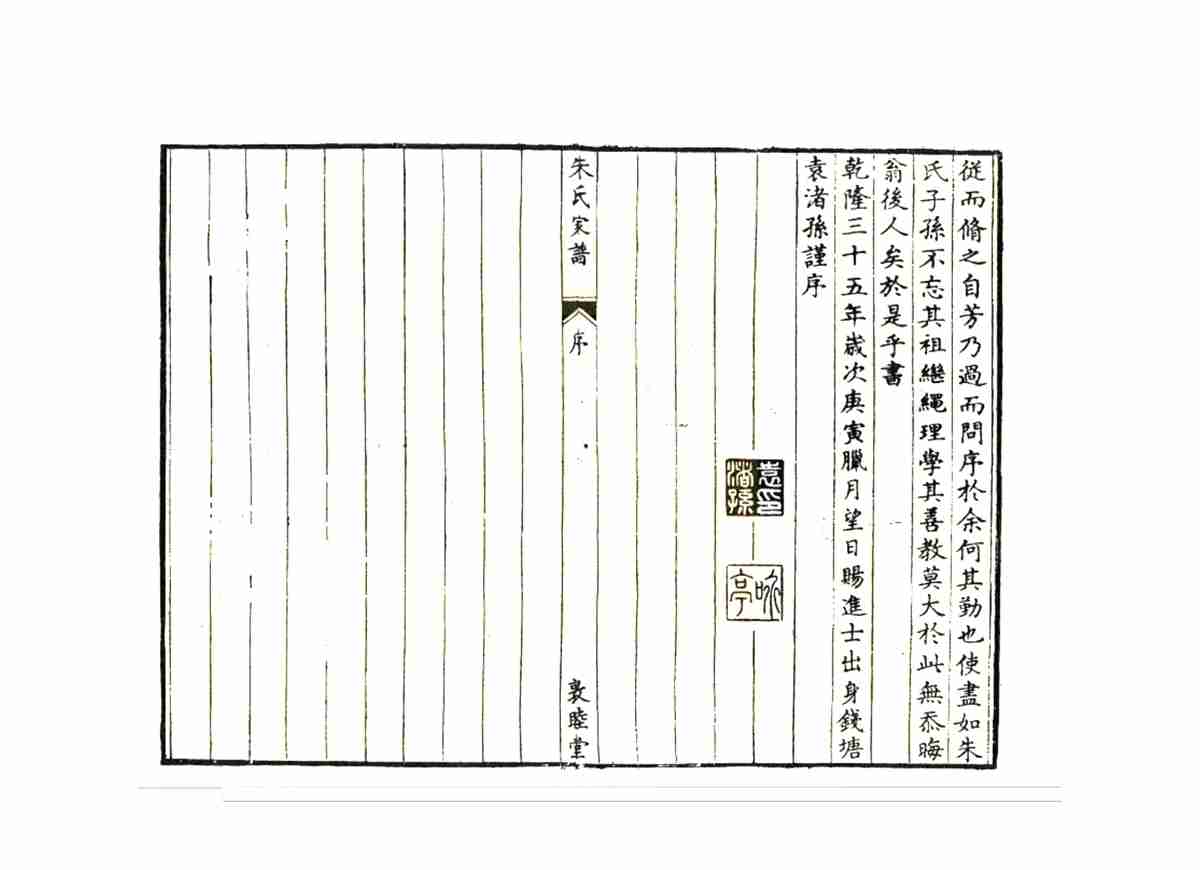 從而脩之自芳乃過而問序於余何其勤也使盡如朱
氏子孫不忘其祖繼繩理學其善教莫大於此無忝晦
翁後人矣於是乎書
乾隆三十五年歲次庚寅臘月望日賜進士出身錢塘
袁渚孫謹序
袁印
渚孫
咏
亭
朱氏家譜
序
敦睦堂